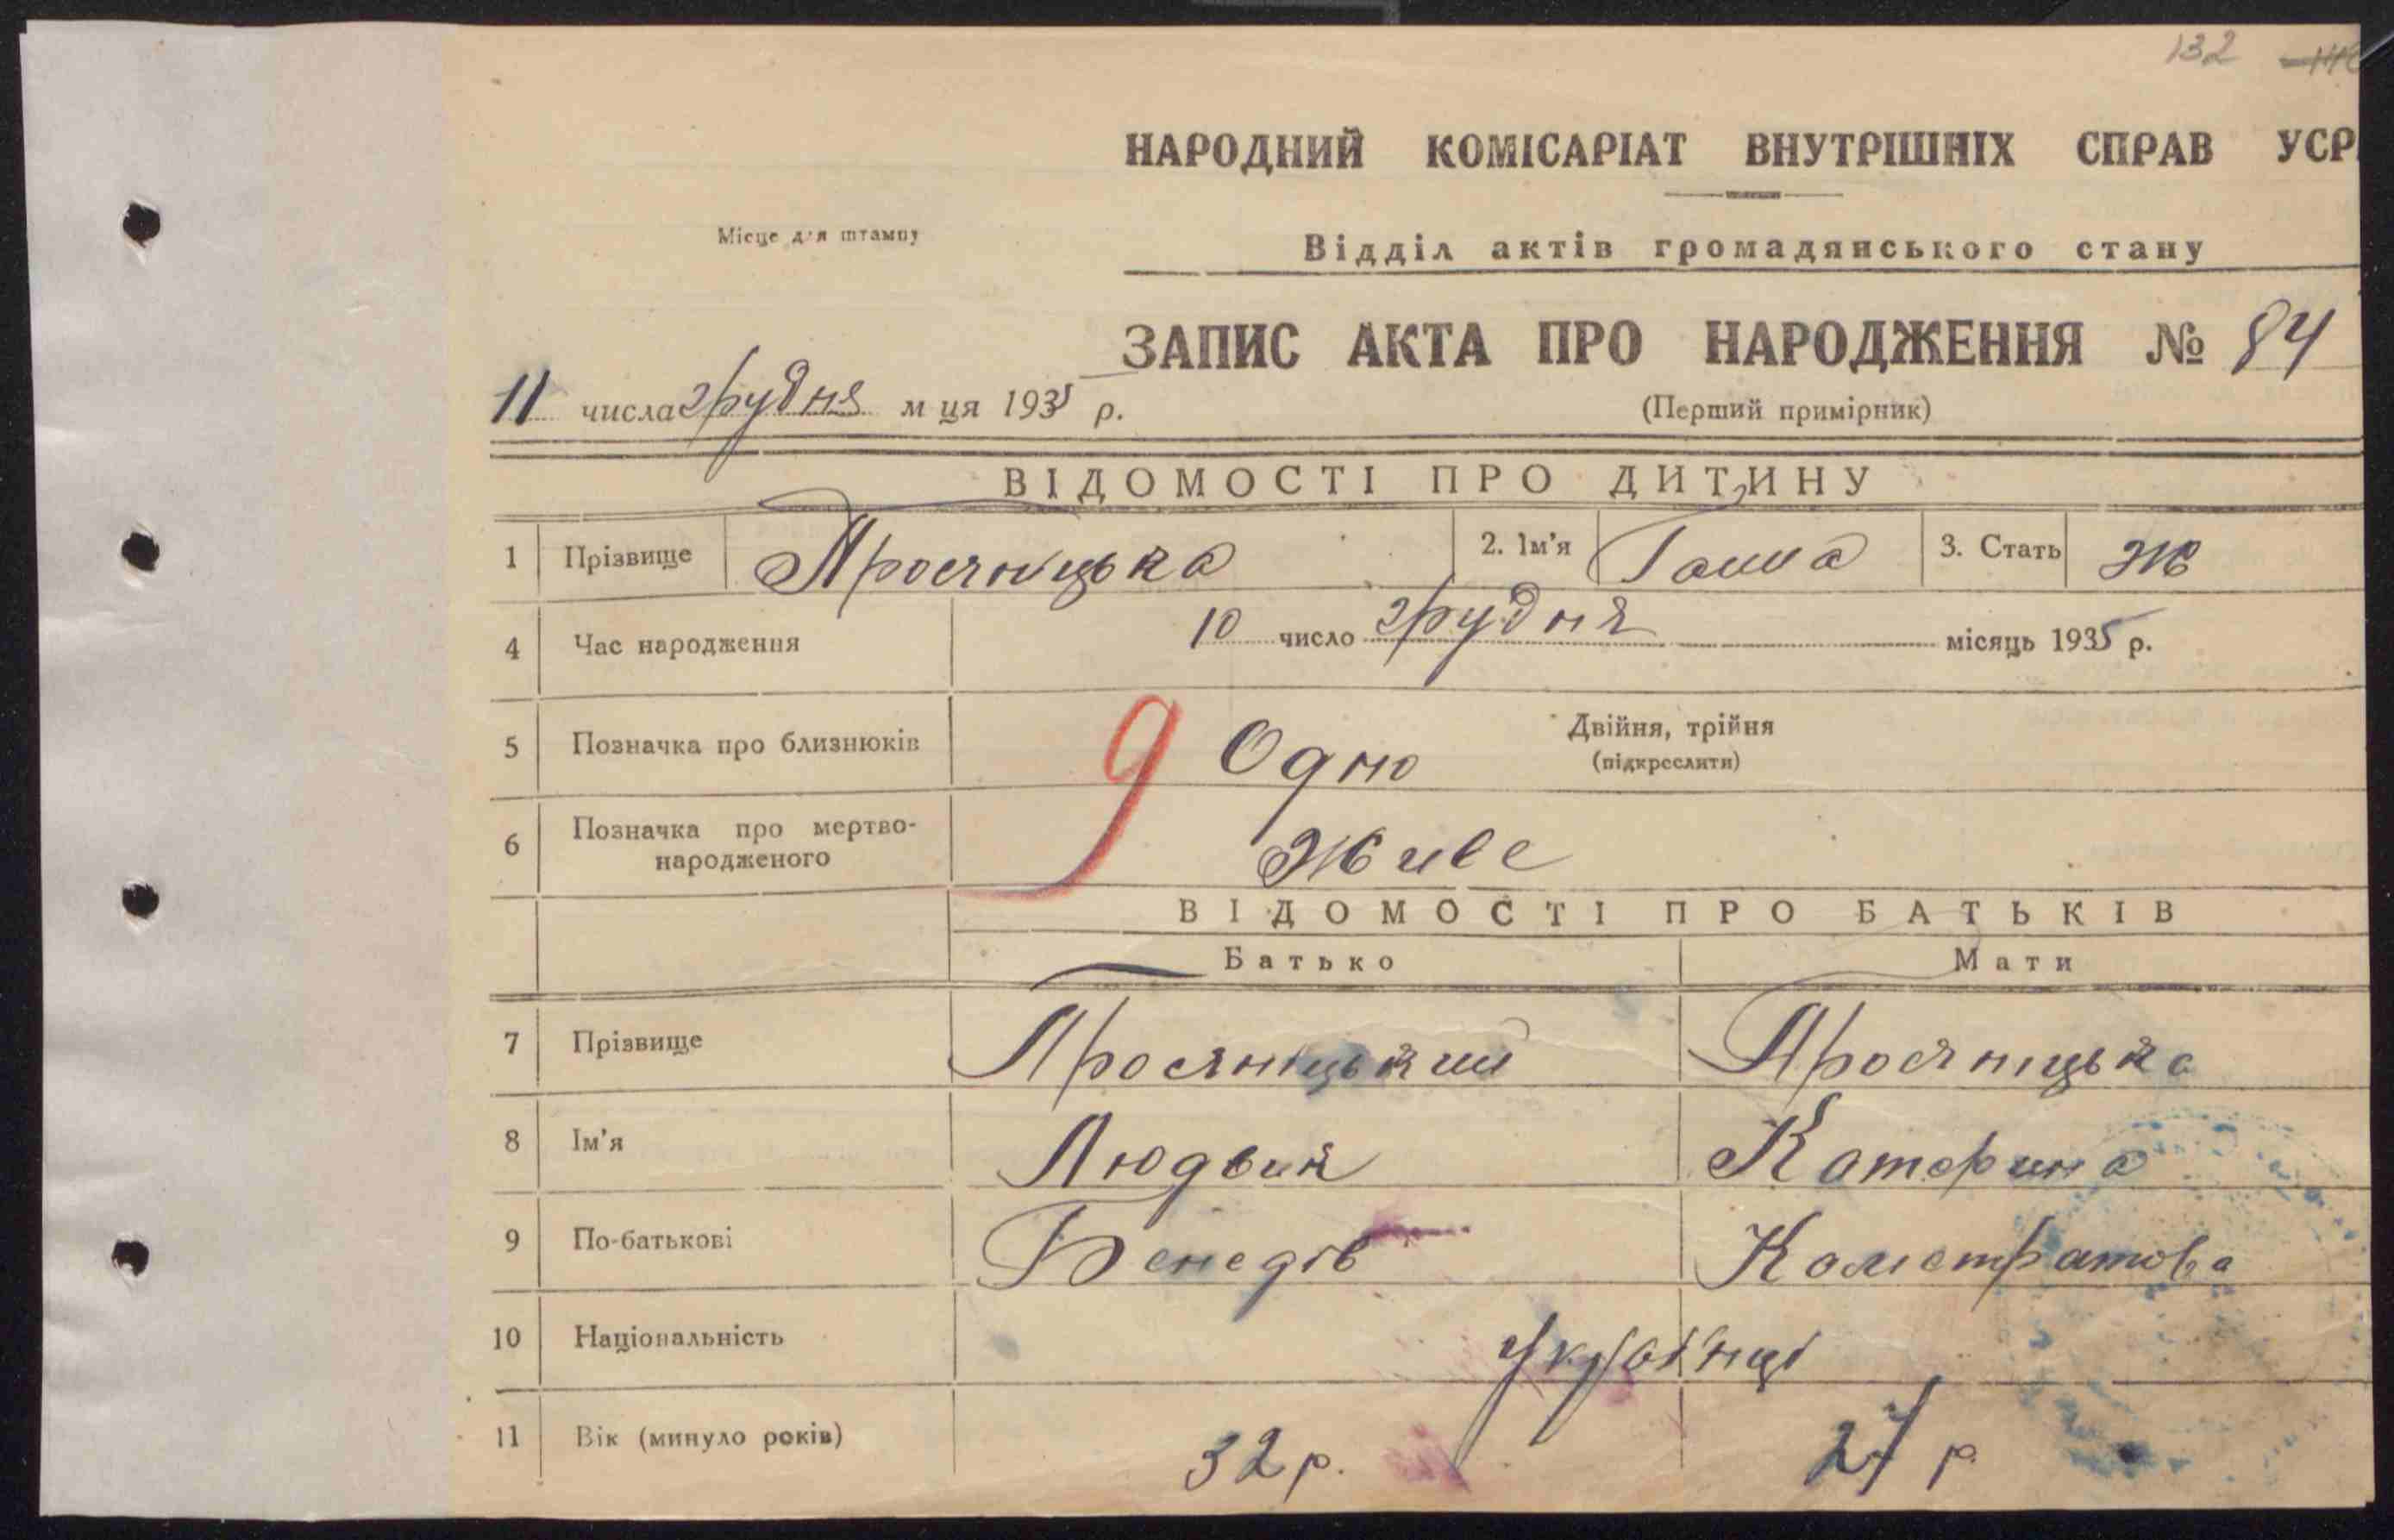 132
НАРОДНИЙ КОМІСАРІАТ ВНУТРІШНІХ СПРАВ УСР
Місце для штампу
Відділ актів громадянського стану
ЗАПИС АКТА ПРО НАРОДЖЕННЯ № 84
11 числа грудня м ця 1935 р.
(Перший примірник)
ВІДОМОСТІ ПРО ДИТИНУ
1 Прізвище Просяніцька 2. Ім'я Ганна 3. Стать Ж
4 Час народження 10 число грудня місяць 1935 р.
5 Позначка про близнюків 9 Одно Двійня, трійня
(підкреслити)
6 Позначка про мертво-
народженого Живе
ВІДОМОСТІ ПРО БАТЬКІВ
Батько Мати
7 Прізвище Просяніцький Просяніцька
8 Ім'я Людвик Катерина
9 По-батькові Бенедів Калістратова
10 Національність Українці
11 Вік (минуло років) 32 р. 27 р